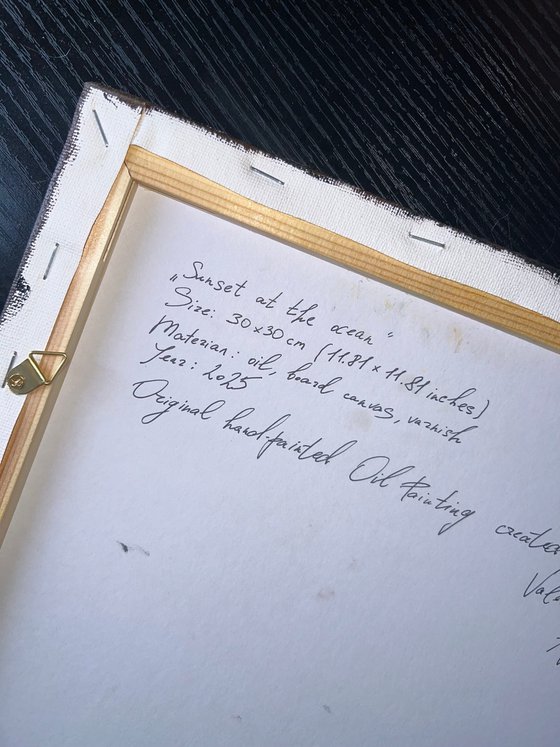 „Sunset at the ocean“
Size: 30x30 cm (11.81 x 11.81 inches)
Materian: oil, board canvas, varnish
Year: 2025
Original hand-painted Oil Painting